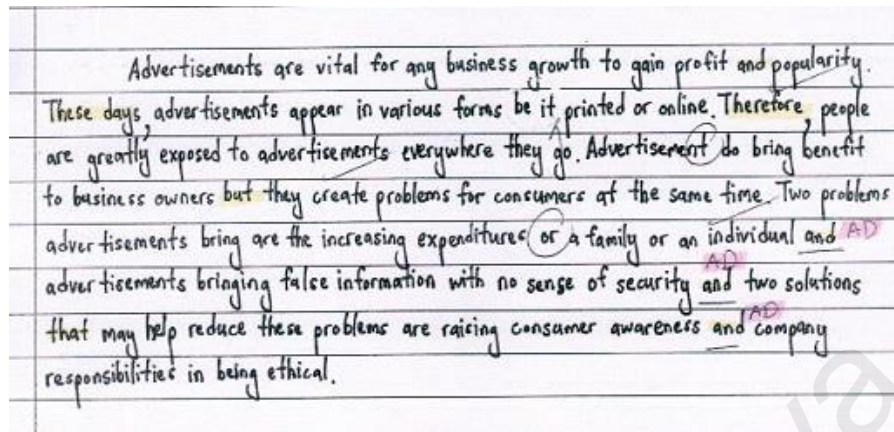 Advertisements are vital for any business growth to gain profit and popularity.
These days, advertisements appear in various forms be it printed or online. Therefore, people
are greatly exposed to advertisements everywhere they go. Advertisement do bring benefit
to business owners but they create problems for consumers at the same time. Two problems
advertisements bring are the increasing expenditures or a family or an individual and AD
AD
advertisements bringing false information with no sense of security and two solutions
AD
that may help reduce these problems are raising consumer awareness and company
responsibilities in being ethical.